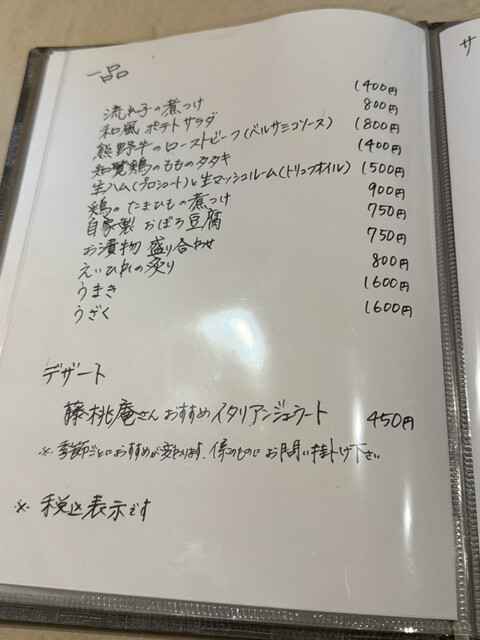 一品
流れ子の煮つけ 1400円
和風ポテトサラダ 800円
熊野牛のローストビーフ(バルサミコソース) 1800円
知覧鶏のもものタタキ 1400円
生ハム(プロシュート)と生マッシュルーム(トリュフオイル) 1500円
鶏のたまひもの煮つけ 900円
自家製おぼろ豆腐 750円
お漬物盛り合わせ 750円
えいひれの炙り 800円
うまき 1600円
うざく 1600円
デザート
藤桃庵さんおすすめイタリアンジェラート 450円
※季節ごとにおすすめが変わります。係のものにお問い掛け下さい
※税込表示です
サ